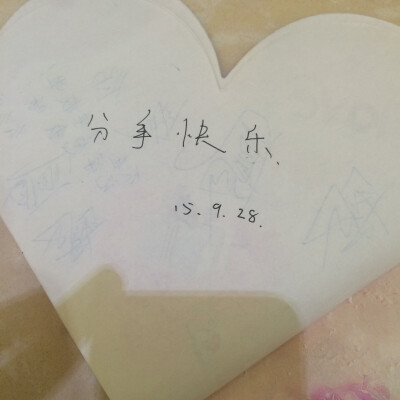 分手快乐.
15.9.28.